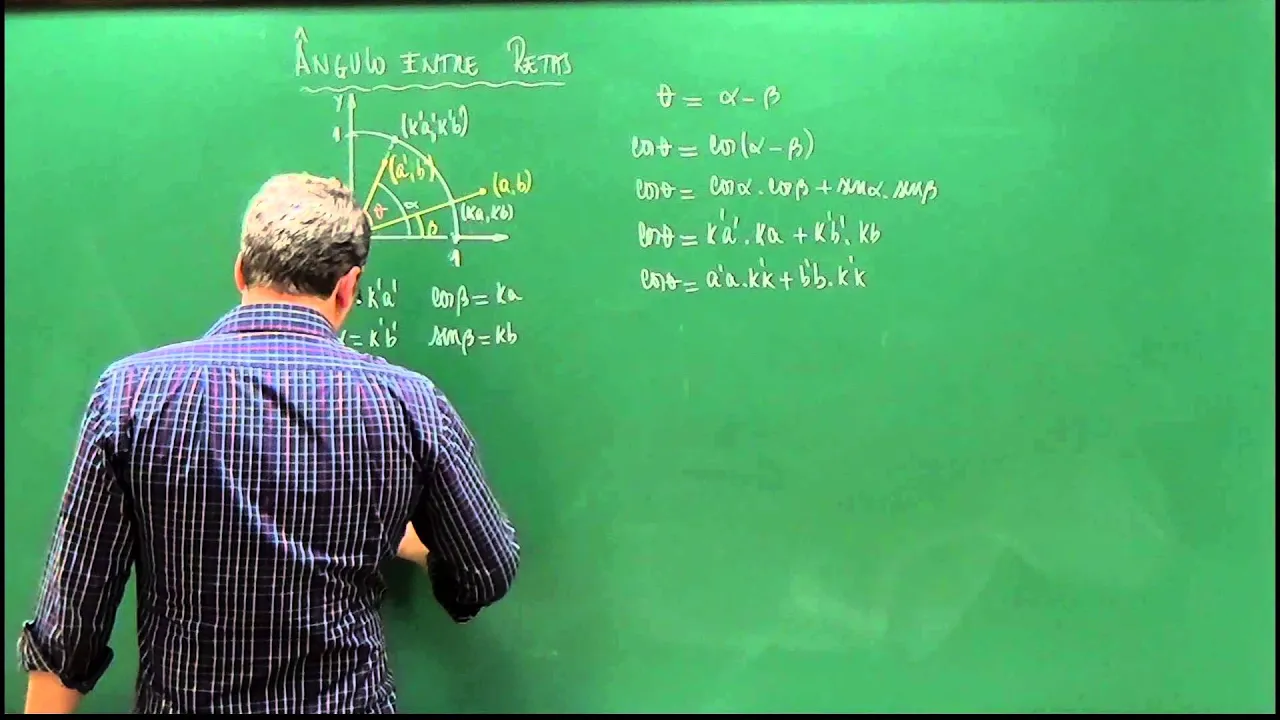 ÂNGULO ENTRE RETAS
y
1
(k'a', k'b')
(a', b')
(a, b)
θ
α
β
(ka, kb)
1
k'a' cosβ = ka
α = k'b' senβ = kb
θ = α - β
cosθ = cos(α - β)
cosθ = cosα . cosβ + senα . senβ
cosθ = k'a' . ka + k'b' . kb
cosθ = a'a . k'k + b'b . k'k